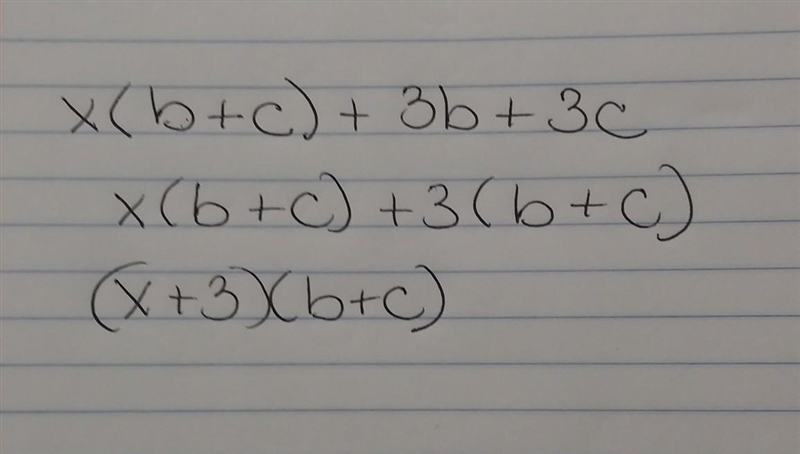 x(b+c) + 3b + 3c
x(b+c) + 3(b+c)
(x+3)(b+c)